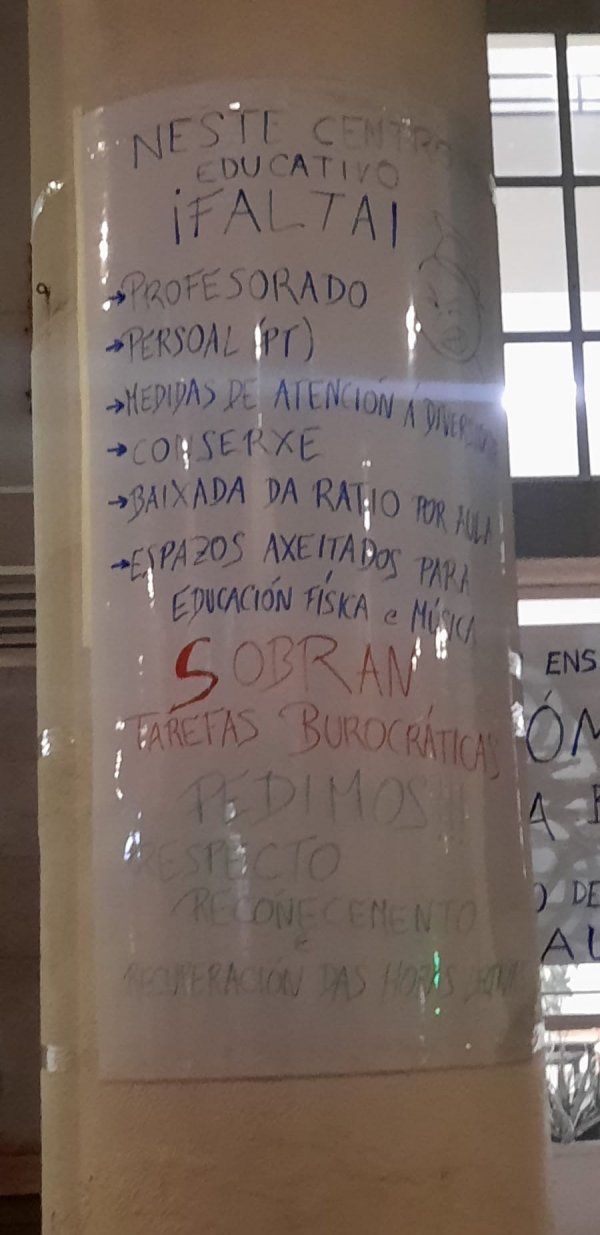 NESTE CENTRO
EDUCATIVO
¡FALTA!
→PROFESORADO
→PERSOAL (PT)
→MEDIDAS DE ATENCIÓN Á DIVERSIDADE
→CONSERXE
→BAIXADA DA RATIO POR AULA
→ESPAZOS AXEITADOS PARA
EDUCACIÓN FÍSICA e MÚSICA
SOBRAN
TAREFAS BUROCRÁTICAS
PEDIMOS!!!
RESPECTO
RECOÑECEMENTO
e
RECUPERACIÓN DAS HORAS
ENS
ÓM
A
) DE
AL